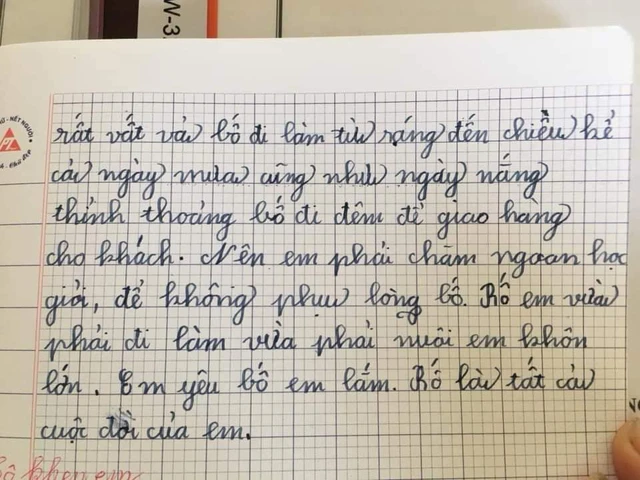 W-3
NẾT NGƯỜI
rất vất vả bố đi làm từ ráng đến chiều kể
cả ngày mưa cũng như ngày nắng
thỉnh thoảng bố đi đêm để giao hàng
cho khách. Nên em phải chăm ngoan học
giỏi, để không phụ lòng bố. Bố em vừa
phải đi làm vừa phải nuôi em khôn
lớn. Em yêu bố em lắm. Bố là tất cả
cuộc đời của em.
khen em